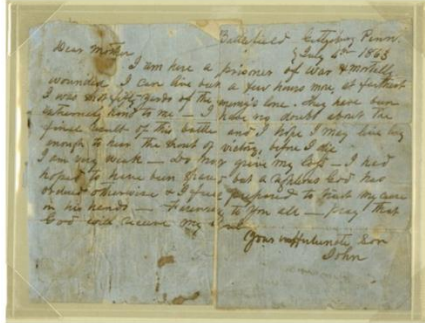 Battlefield Gettysburg Penn.
July 2d 1863
Dear Mother
I am here a prisoner of war & mortally
wounded. I can live but a few hours more at farthest
I was shot fifty yards of the enemy's line. They have been
extremely kind to me — I have no doubt about the
final result of this battle and I hope I may live long
enough to hear the shout of victory, before I die
I am very weak — Do not give my loss — I had
hoped to have been but a God has
ordered otherwise & I feel prepared to trust my case
in his hands — Farewell to you all — Pray that
God will receive my soul
Your unfortunate Son
John